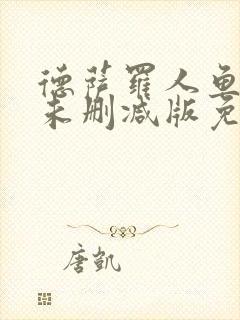 德萨罗人鱼
未删减版免
唐凯